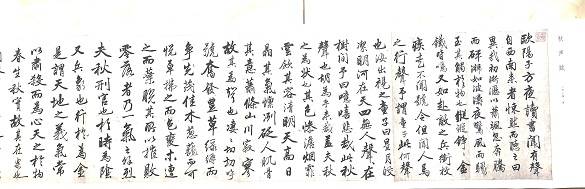 秋聲賦
歐陽子方夜讀書聞有聲
自西南來者悚然而聽之曰
異哉初淅瀝以蕭颯忽奔騰
而砰湃如波濤夜驚風雨驟
至其觸於物也鏦鏦錚錚金
鐵皆鳴又如赴敵之兵銜枚
疾走不聞號令但聞人馬
之行聲予謂童子此何聲
也汝出視之童子曰星月皎
潔明河在天四無人聲聲在
樹間予曰噫嘻悲哉此秋
聲也胡為乎來哉蓋夫秋
之為狀也其色慘淡煙霏
雲斂其容清明天高日
晶其氣慄冽砭人肌骨
其意蕭條山川寂寥
故其為聲也淒淒切切呼
號奮發豐草綠縟而
爭茂佳木葱蘢而可
悅草拂之而色變木遭
之而葉脫其所以摧敗
零落者乃一氣之餘烈
夫秋刑官也於時為陰
又兵象也於行為金
是謂天地之義氣常
以肅殺而為心天之於物
春生秋實故其在樂也